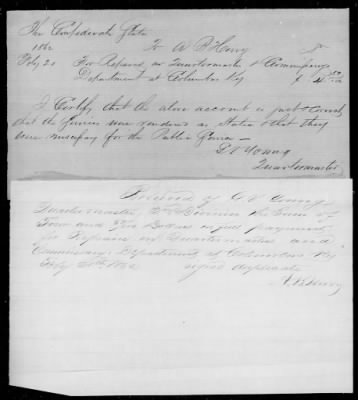 The Confederate States
1862 To A B Henry Dr
Feby 20 For Repairs on Quartermaster & Commissary
Department at Columbus Ky $
I Certify that the above account is just & correct
that the services were rendered as stated & that they
were necessary for the Public Service —
Young
Quartermaster
Received of Young
Quartermaster, the Sum of
Four and Dollars in full payment
for Repairs on Quartermaster and
Commissary Department at Columbus Ky
Feby 20th 1862 signed duplicate
A B Henry